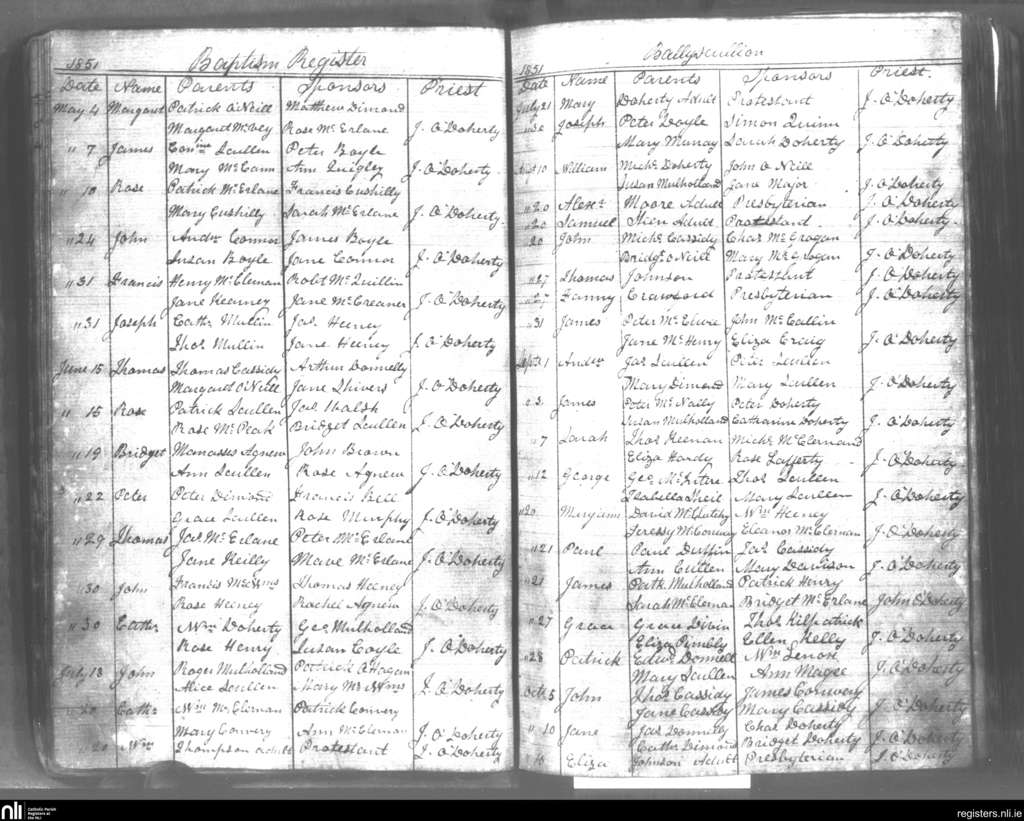 1851 Baptism Register
Date Name Parents Sponsors Priest
May 4 Margaret Patrick O'Neill Matthew Dimond
Margaret McVey Rose McErlane J. O'Doherty
" 7 James Peter Boyle
Mary McCann Ann Quigley J. O'Doherty
" 10 Rose Patrick McErlane Francis Cushilly
Mary Cushilly Sarah McErlane J. O'Doherty
" 24 John Andw Connor James Boyle
Susan Boyle Jane Connor J. O'Doherty
" 31 Francis Henry McCleman Robt McQuillin
Jane Kearney Jane McCreanor J. O'Doherty
" 31 Joseph Cathe Mullin Jas Heeney
Thos Mullin Jane Heeney J. O'Doherty
June 15 Thomas Thomas Cassidy Arthur Donnelly
Margaret O'Neill Jane Shivers J. O'Doherty
" 15 Rose Patrick Scullen Jas Walsh
Rose McPeak Bridget Scullen J. O'Doherty
" 19 Bridget Manasses Agnew John Brown
Ann Scullen Rose Agnew J. O'Doherty
" 22 Peter Peter Dimond Francis Bell
Grace Scullen Rose Murphy J. O'Doherty
" 29 Thomas Jas McErlane Peter McErlane
Jane Keilly Mave McErlane J. O'Doherty
" 30 John Francis Thomas Heeney
Rose Heeney Rachel Agnew J. O'Doherty
" 30 Cathe Wm Doherty Geo Mulholland
Rose Henry Susan Coyle J. O'Doherty
July 13 John Roger Mulholland Patrick O'Hagan
Alice Scullen Mary J. O'Doherty
" 20 Cathe Wm McClernan Patrick Convery
Mary Convery Ann McClernan J. O'Doherty
" 20 Wm Thompson adult Protestant J. O'Doherty
1851 Ballyscullion
Date Name Parents Sponsors Priest.
July 21 Mary Doherty Adult Protestant J. O'Doherty
" 30 Joseph Peter Doyle Simon Quinn
Mary Murray Sarah Doherty J. O'Doherty
10 William Michl Doherty John O'Neill
Susan Mulholland Jane Major J. O'Doherty
" 20 Alexr Moore Adult Presbyterian J. O'Doherty
" 20 Samuel Adult Protestand J. O'Doherty
" 20 John Michl Cassidy Chas McGrogan
Bridgt O'Neill Mary McGrogan J. O'Doherty
" 27 Thomas Johnson Protestant J. O'Doherty
" 27 Fanny Crawford Presbyterian J. O'Doherty
" 31 James Peter McElwee John McCallin
Jane McHenry Eliza Craig J. O'Doherty
Septr 1 Andw Jas Scullen Peter Scullen
Mary Dimond Mary Scullen J. O'Doherty
" 31 James Peter McNally Peter Doherty
Susan Mulholland Catharine Doherty J. O'Doherty
" 7 Sarah Thos Keenan Michl McClernand
Eliza Hardy Rose Lafferty J. O'Doherty
" 12 George Geo McIntire Thos Scullen
Isabella Neil Mary Scullen J. O'Doherty
" 20 Maryann David Wm Heeney
Teressy McConway Eleanor McClernan J. O'Doherty
" 21 Paul Paul Duffin Jas Cassidy
Ann Cullen Mary Davison J. O'Doherty
" 21 James Patk Mulholland Patrick Henry
Sarah McClernan Bridget McErlane John O'Doherty
" 27 Grace Grace Divin Thos Kilpatrick
Eliza Pimbly Ellen Kelly J. O'Doherty
" 28 Patrick Edwd Donnell Wm Lenox
Mary Scullen Ann Magee J. O'Doherty
Octr 5 John Thos Cassidy James Convery
Jane Cassidy Mary Cassidy J. O'Doherty
" 10 Jane Jas Donnelly Chas Doherty
Cathe Dimond Bridget Doherty J. O'Doherty
" 16 Eliza Johnson Adult Presbyterian J. O'Doherty
nli
Catholic Parish
Registers at
the NLI
registers.nli.ie